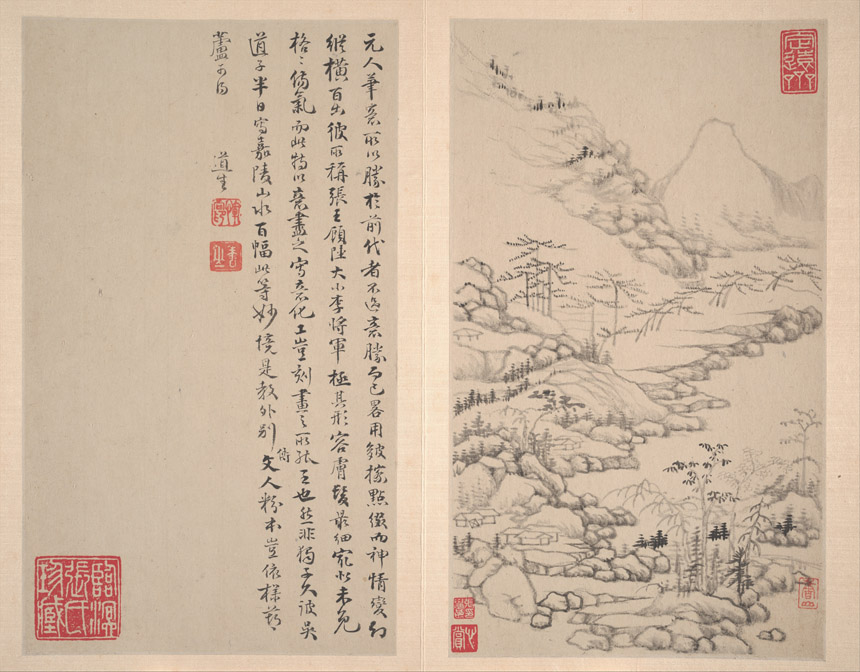 元人筆意所以勝於前代者不過意勝而已畧用皴擦點綴而神情變幻
縱橫百出彼所稱張王顧陸大小李將軍極其形容膚髮最細究以未免
格〻傷氣而此特以意盡之寫意化工豈刻畫之所能至也然非獨子久彼吳
道子半日寫嘉陵山水百幅此等妙境是教外別傳文人粉本豈依樣葫〻
蘆可得
道生
臨潁張氏珍藏